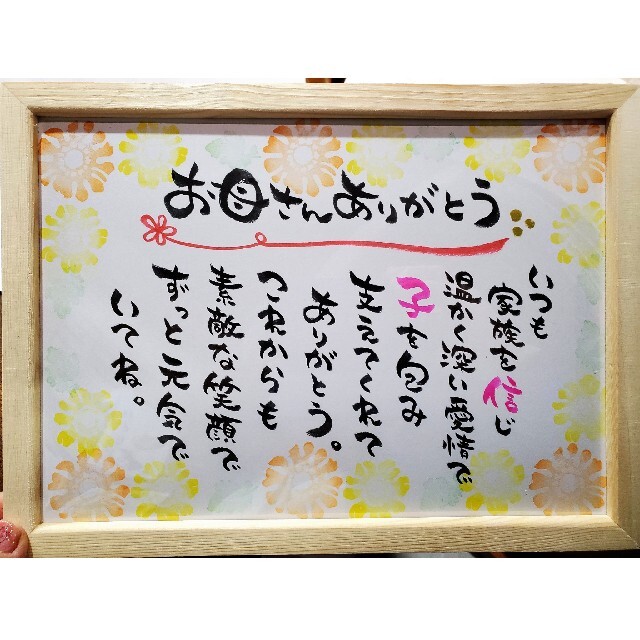 お母さんありがとう
いつも
家族を信じ
温かく深い愛情で
子を包み
支えてくれて
ありがとう。
これからも
素敵な笑顔で
ずっと元気で
いてね。